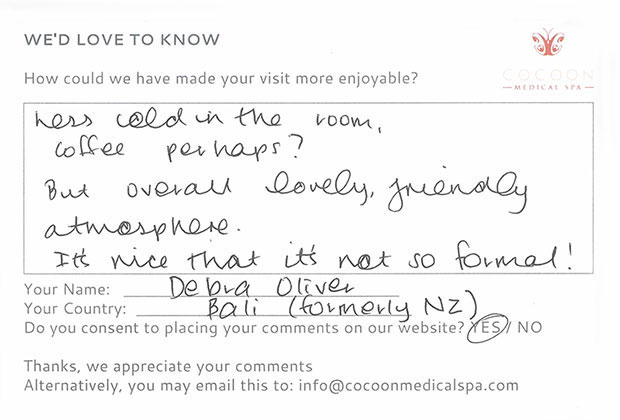 WE'D LOVE TO KNOW
COCOON
MEDICAL SPA
How could we have made your visit more enjoyable?
Less cold in the room,
coffee perhaps?
But overall lovely, friendly
atmosphere.
It's nice that it's not so formal!
Your Name: Debra Oliver
Your Country: Bali (formerly NZ)
Do you consent to placing your comments on our website? YES / NO
Thanks, we appreciate your comments
Alternatively, you may email this to: info@cocoonmedicalspa.com